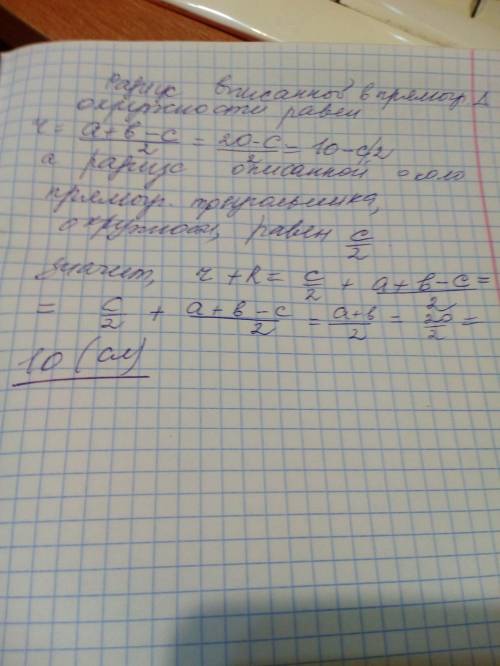 Радиус вписанной в прямоуг. Δ
окружности равен
r = (a+b-c)/2 = (20-c)/2 = 10-c/2
а радиус описанной около
прямоуг. треугольника,
окружности, равен c/2.
значит, r+R = c/2 + (a+b-c)/2 =
= c/2 + (a+b-c)/2 = (a+b)/2 = 20/2 =
10 (см)